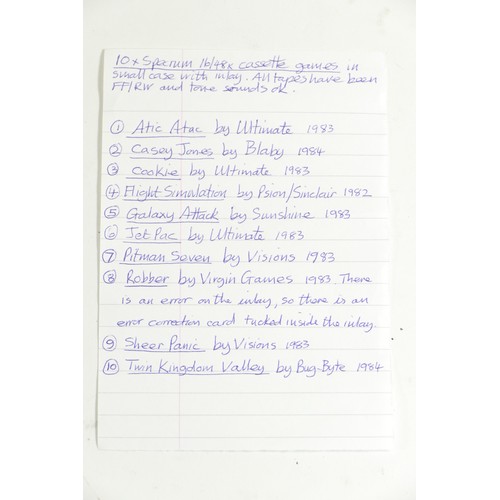 10 x Specrum 16/48k cassette games in
small case with inlay. All tapes have been
FF/RW and tone sounds ok.
① Atic Atac by Ultimate 1983
② Casey Jones by Blaby 1984
③ Cookie by Ultimate 1983
④ Flight Simulation by Psion/Sinclair 1982
⑤ Galaxy Attack by Sunshine 1983
⑥ Jet Pac by Ultimate 1983
⑦ Pitman Seven by Visions 1983
⑧ Robber by Virgin Games 1983. There
is an error on the inlay, so there is an
error correction card tucked inside the inlay.
⑨ Sheer Panic by Visions 1983
⑩ Twin Kingdom Valley by Bug-Byte 1984